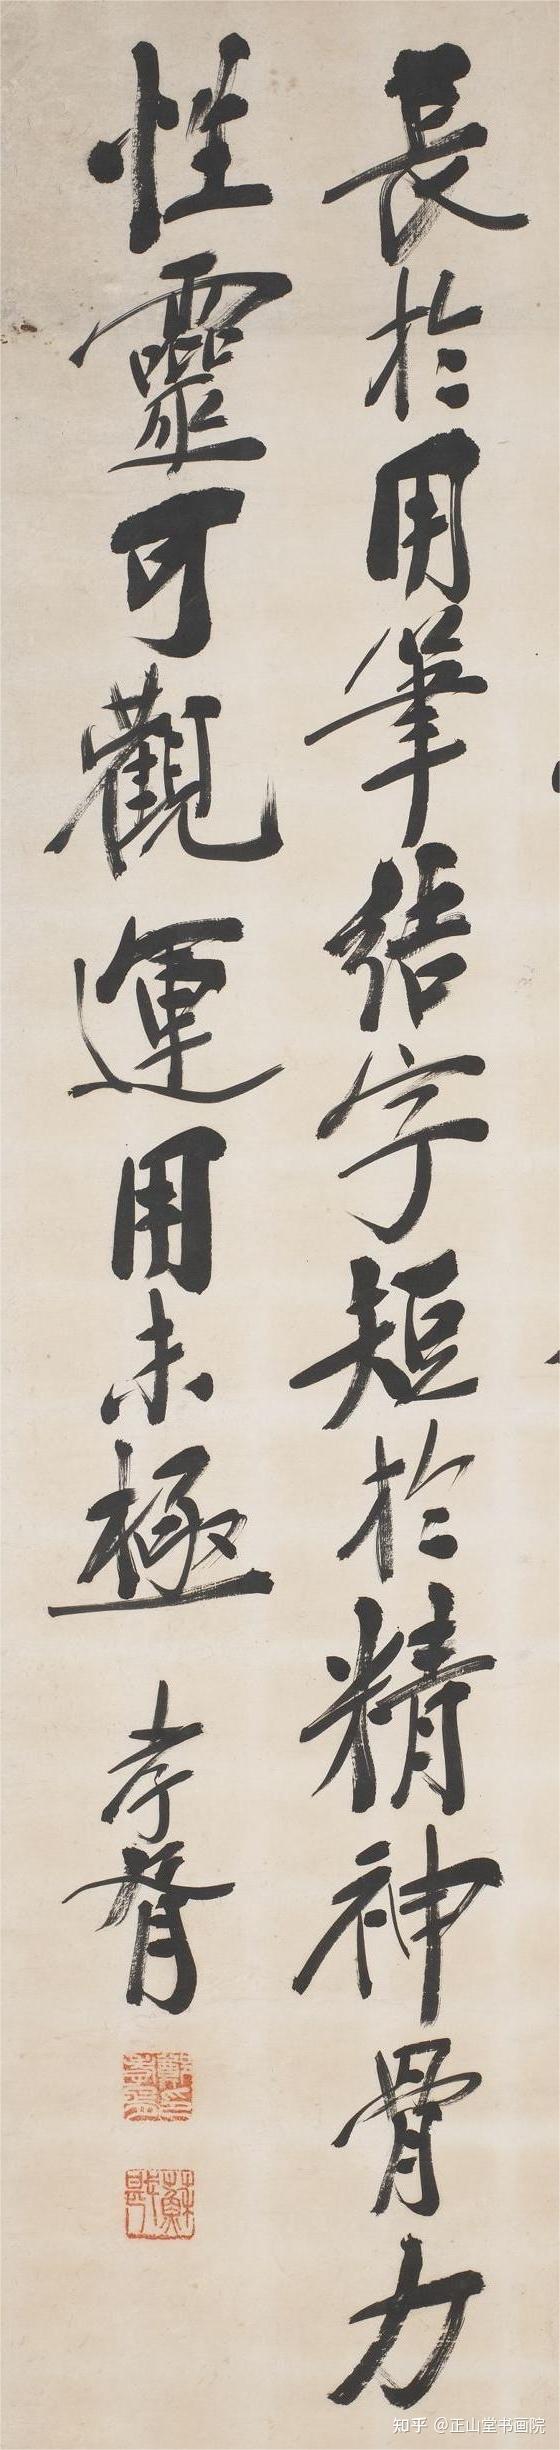 長於用筆結字短於精神骨力
性靈可觀運用未極
孝胥
鄭孝胥印
蘇戡
知乎 @正山堂书画院